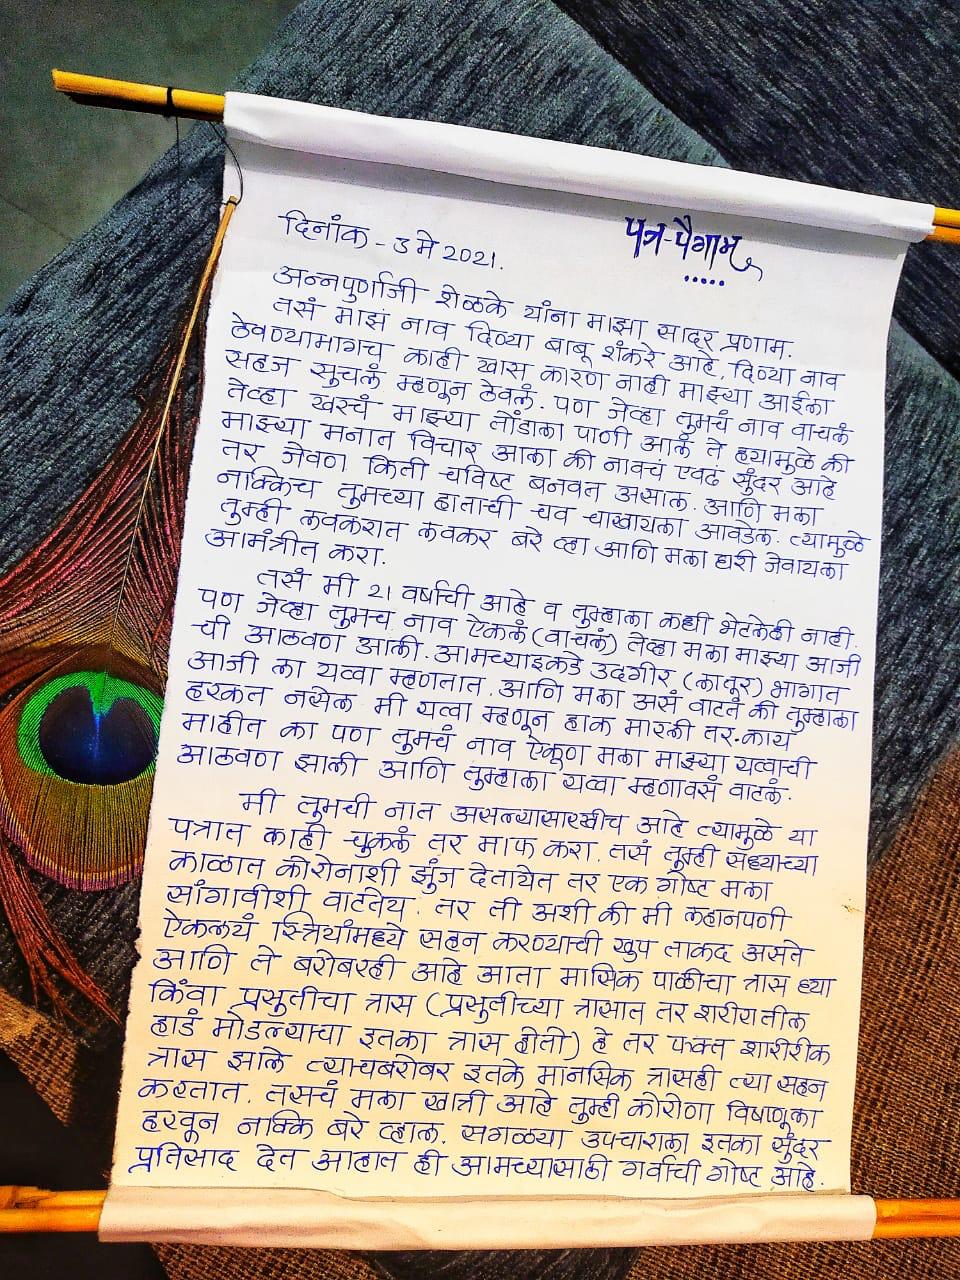 पत्र-पैगाम
दिनांक - 3 मे 2021.
अन्नपुर्णाजी शेळके यांना माझा सादर प्रणाम.
तसं माझं नाव दिव्या बाबू शंकरे आहे. दिव्या नाव
ठेवण्यामागच काही खास कारण नाही माझ्या आईला
सहज सुचलं म्हणून ठेवलं. पण जेव्हा तुमचं नाव वाचलं
तेव्हा खरचं माझ्या तोंडाला पाणी आलं ते ह्यामुळे की
माझ्या मनात विचार आला की नावचं एवढं सुंदर आहे
तर जेवण किती चविष्ट बनवत असाल. आणि मला
नाक्किच तुमच्या हाताची चव चाखायला आवडेल. त्यामुळे
तुम्ही लवकरात लवकर बरे व्हा आणि मला घरी जेवायला
आमंत्रीत करा.
तसं मी 21 वर्षाची आहे व तुम्हाला कधी भेटलेली नाही.
पण जेव्हा तुमच नाव ऐकलं (वाचलं) तेव्हा मला माझ्या आजी
ची आठवण आली. आमच्याइकडे उदगीर (लातूर) भागात
आजी ला यव्वा म्हणतात. आणि मला असं वाटतं की तुम्हाला
हरकत नसेल मी यव्वा म्हणून हाक मारली तर. काय
माहीत का पण तुमचं नाव ऐकूण मला माझ्या यव्वाची
आठवण झाली आणि तुम्हाला यव्वा म्हणावसं वाटलं.
मी तुमची नात असल्यासारखीच आहे त्यामुळे या
पत्रात काही चुकलं तर माफ करा. तसं तुम्ही सध्याच्या
काळात कोरोनाशी झुंज देतायेत तर एक गोष्ट मला
सांगावीशी वाटतेय. तर ती अशी की मी लहानपणी
ऐकलयं स्त्रियांमध्ये सहन करण्याची खुप ताकद असते
आणि ते बरोबरही आहे आता मासिक पाळीचा त्रास घ्या
किंवा प्रसुतीचा त्रास (प्रसुतीच्या त्रासात तर शरीरातील
हाडं मोडल्याचा इतका त्रास होतो) हे तर फक्त शारीरीक
त्रास झाले त्याचबरोबर इतके मानसिक त्रासही त्या सहन
करतात. तसचं मला खात्री आहे तुम्ही कोरोणा विषाणूला
हरवून नाक्कि बरे व्हाल. सगळ्या उपचाराला इतका सुंदर
प्रतिसाद देत आहात ही आमच्यासाठी गर्वाची गोष्ट आहे.